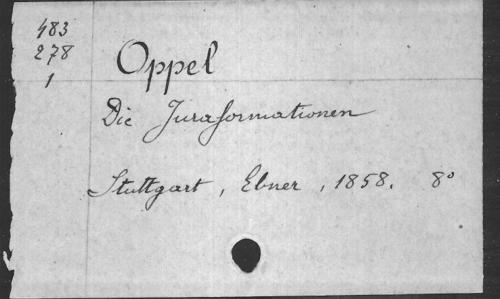 483
278
1
Oppel
Die Juraformationen
Stuttgart, Ebner, 1858. 8°